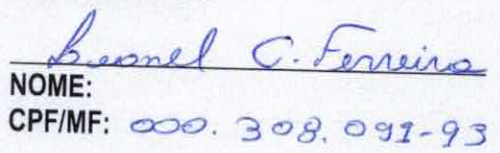 Leonel C. Ferreira
NOME:
CPF/MF: 000.308.091-93